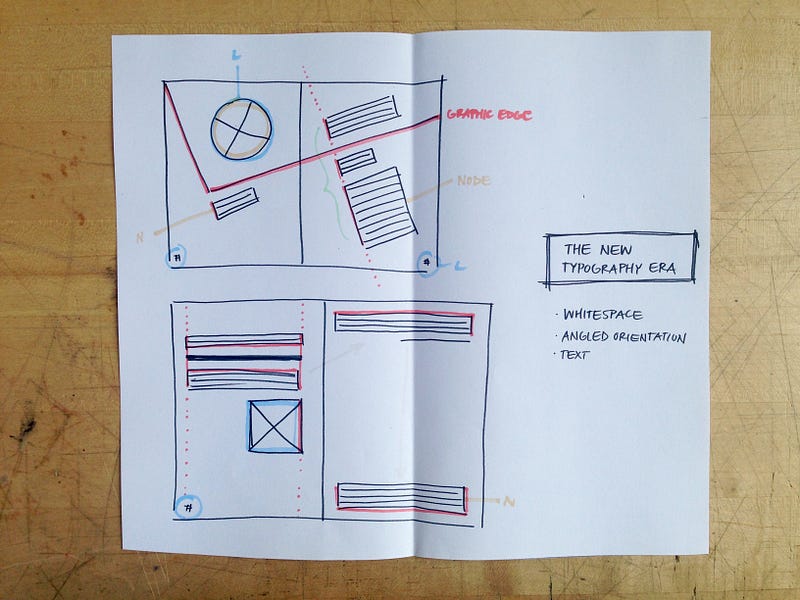 L
GRAPHIC EDGE
NODE
N
#
#
L
THE NEW
TYPOGRAPHY ERA
· WHITESPACE
· ANGLED ORIENTATION
· TEXT
#
N